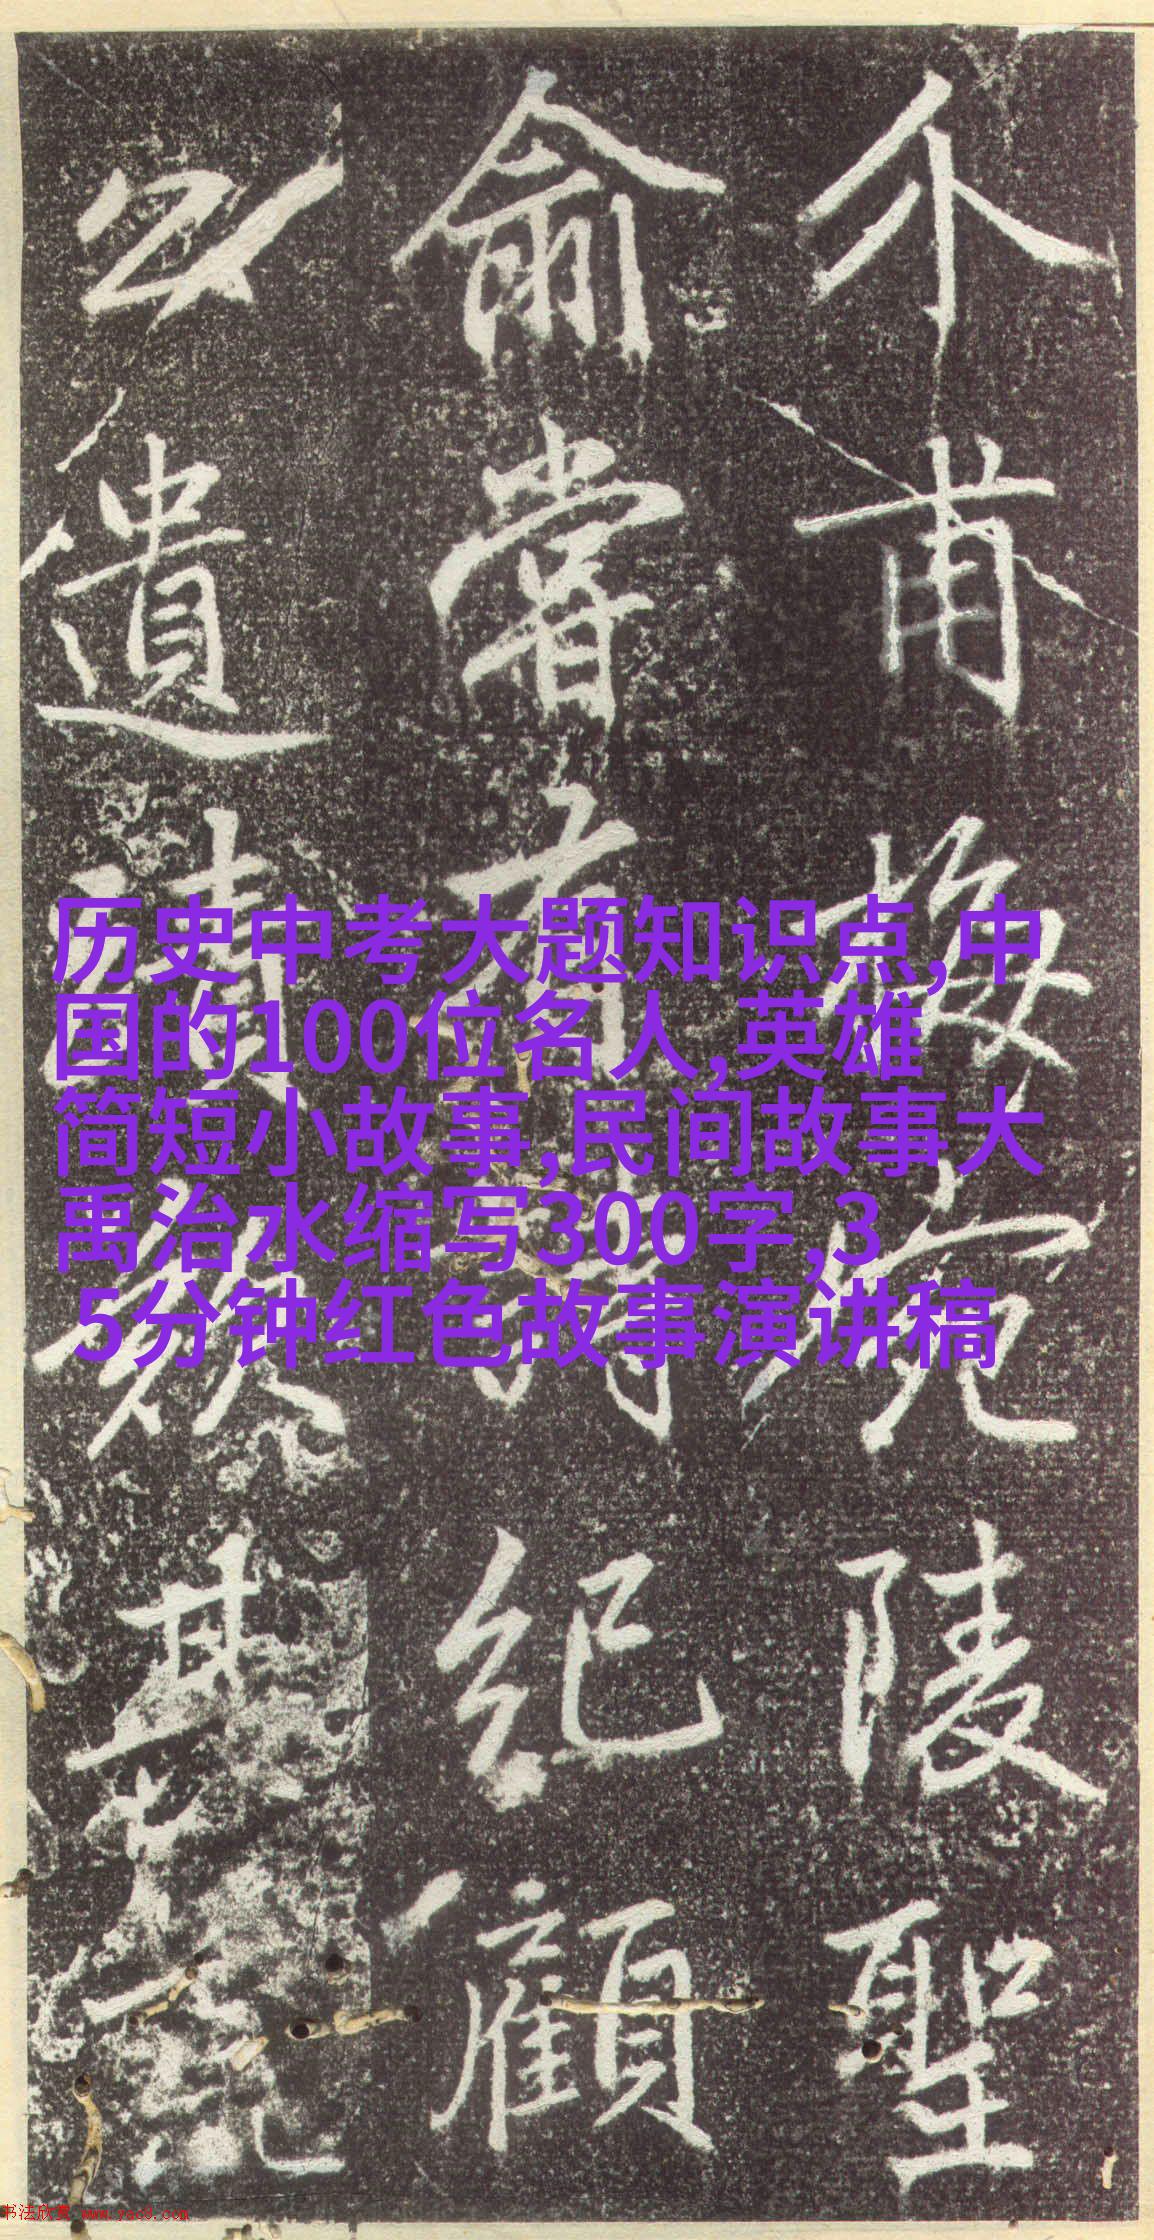 介甫梅宛陵聖
俞嘗有詩紀顧
公遺其
历史中考大题知识点,中
国的100位名人,英雄
简短小故事,民间故事大
禹治水缩写300字,3
5分钟红色故事演讲稿
书法欣赏 www.yac8.com